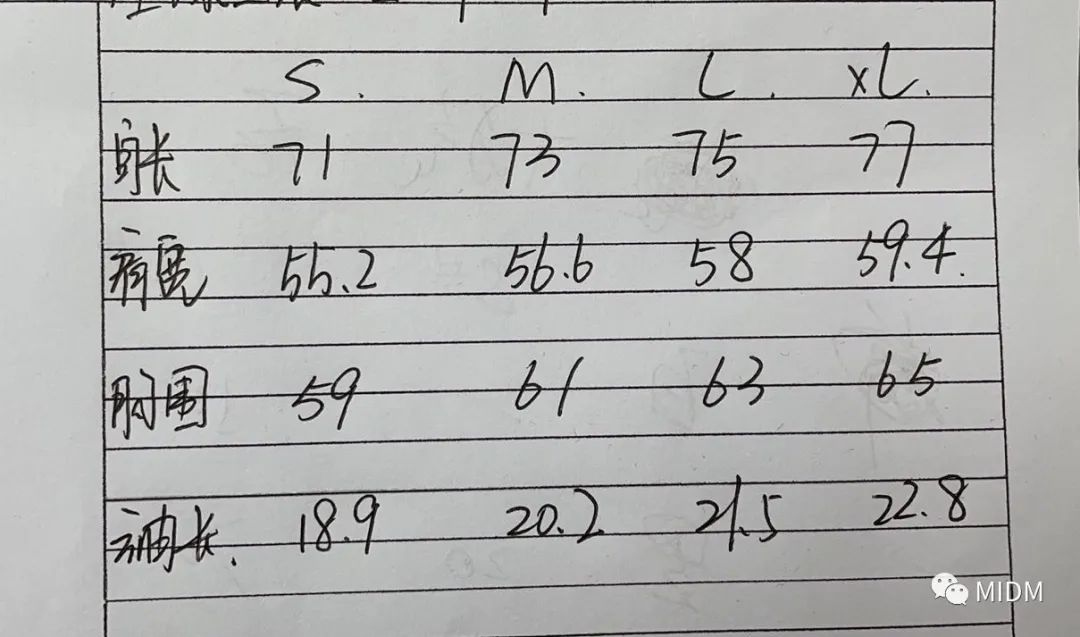 S. M. L. XL.
身长 71 73 75 77
肩宽 55.2 56.6 58 59.4.
胸围 59 61 63 65
袖长. 18.9 20.2 21.5 22.8
MIDM